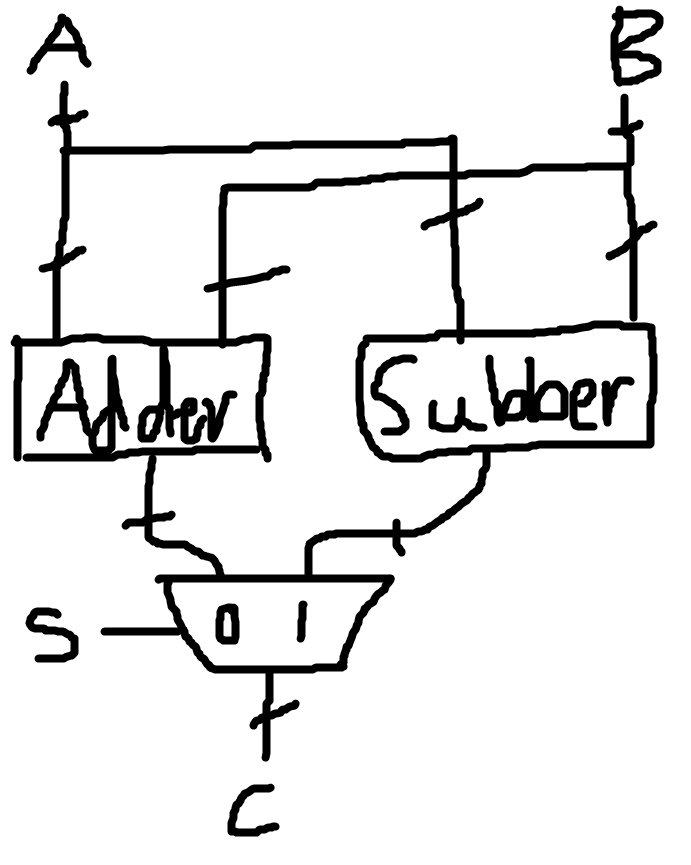 A B
Adder Subber
S 0 1
C